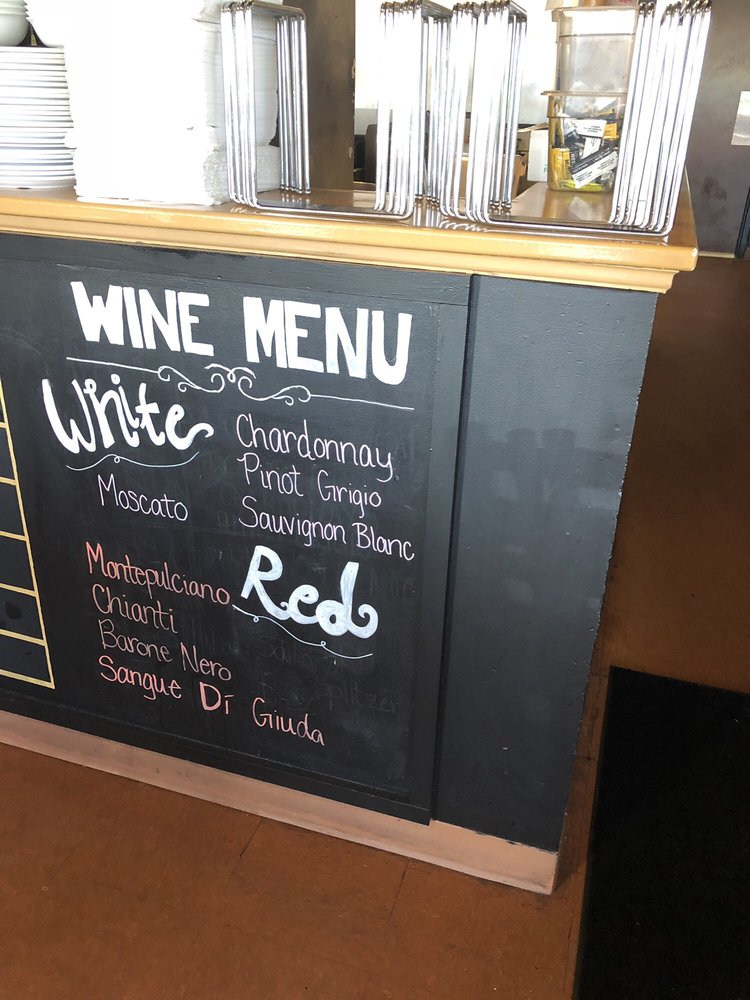 WINE MENU
White
Chardonnay
Pinot Grigio
Sauvignon Blanc
Moscato
Red
Montepulciano
Chianti
Barone Nero
Sangue Di Giuda